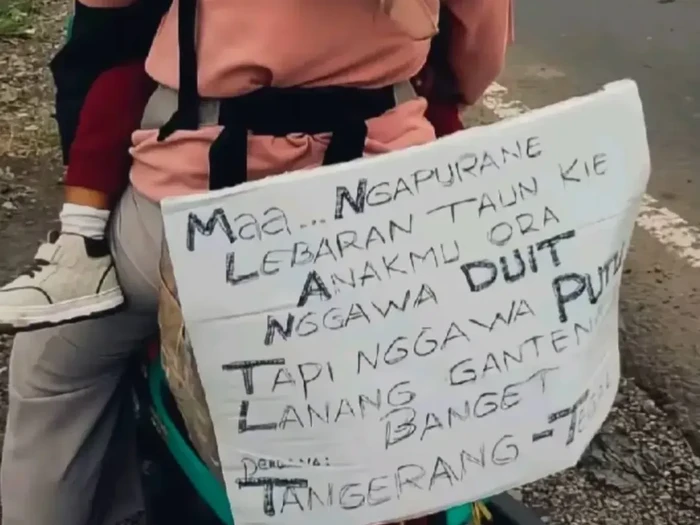 Maa... NGAPURANE
LEBARAN TAUN KIE
ANAKMU ORA
NGGAWA DUIT
TAPI NGGAWA PUTU
LANANG GANTENG
BANGET
TANGERANG - TEGAL